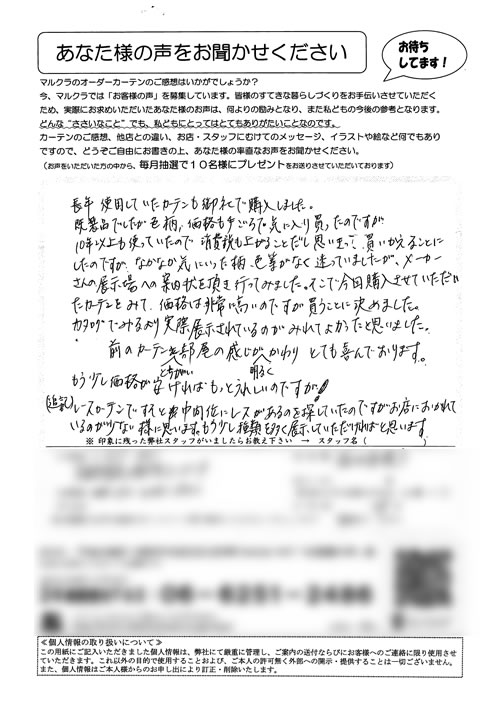 あなた様の声をお聞かせください
お待ち
してます！
マルクラのオーダーカーテンのご感想はいかがでしょうか？
今、マルクラでは「お客様の声」を募集しています。皆様のすてきな暮らしづくりをお手伝いさせていただく
ため、実際にお求めいただいたあなた様のお声は、何よりの励みとなり、また私どもの今後の参考となります。
どんな“ささいなこと”でも、私どもにとってはとてもありがたいことなのです。
カーテンのご感想、他店との違い、お店・スタッフにむけてのメッセージ、イラストや絵など何でもあり
ますので、どうぞご自由にお書きの上、あなた様の率直なお声をお聞かせください。
（お声をいただいた方の中から、毎月抽選で１０名様にプレゼントをお送りさせていただいております）
長年 使用していたカーテンも御社で購入しました。
既製品でしたが色柄、価格も手ごろで気に入り買ったのですが
10年以上も使っていたので 消費税も上がることだし思いきって 買いかえることに
したのですが、なかなか気にいった柄、色等がなく迷っていましたが、メーカー
さんの展示場への案内状を頂き行ってみました。そこで今回購入させていただい
たカーテンをみて、価格は非常に高いのですが買うことに決めました。
カタログでみるより実際展示されているのがみれてよかったと思いました。
前のカーテンと部屋の感じがかわり とても喜んでおります。
とちがい 明るく
もう少し価格が安ければもっとうれしいのですが！
(追記) レースカーテンですと 中間位にレスがあるのを探していたのですがお店におかれて
いるのが少ない様に思います。もう少し種類を多く展示していただければと思います
※ 印象に残った弊社スタッフがいましたらお教え下さい → スタッフ名（ ）
06-6251-2486
≪個人情報の取り扱いについて≫
この用紙にご記入いただきました個人情報は、弊社にて厳重に管理し、ご案内の送付ならびにお客様へのご連絡に限り使用させ
ていただきます。これ以外の目的で使用することおよび、ご本人の許可無く外部への開示・提供することは一切ございません。
また、個人情報はご本人様からのお申し出により訂正・削除いたします。